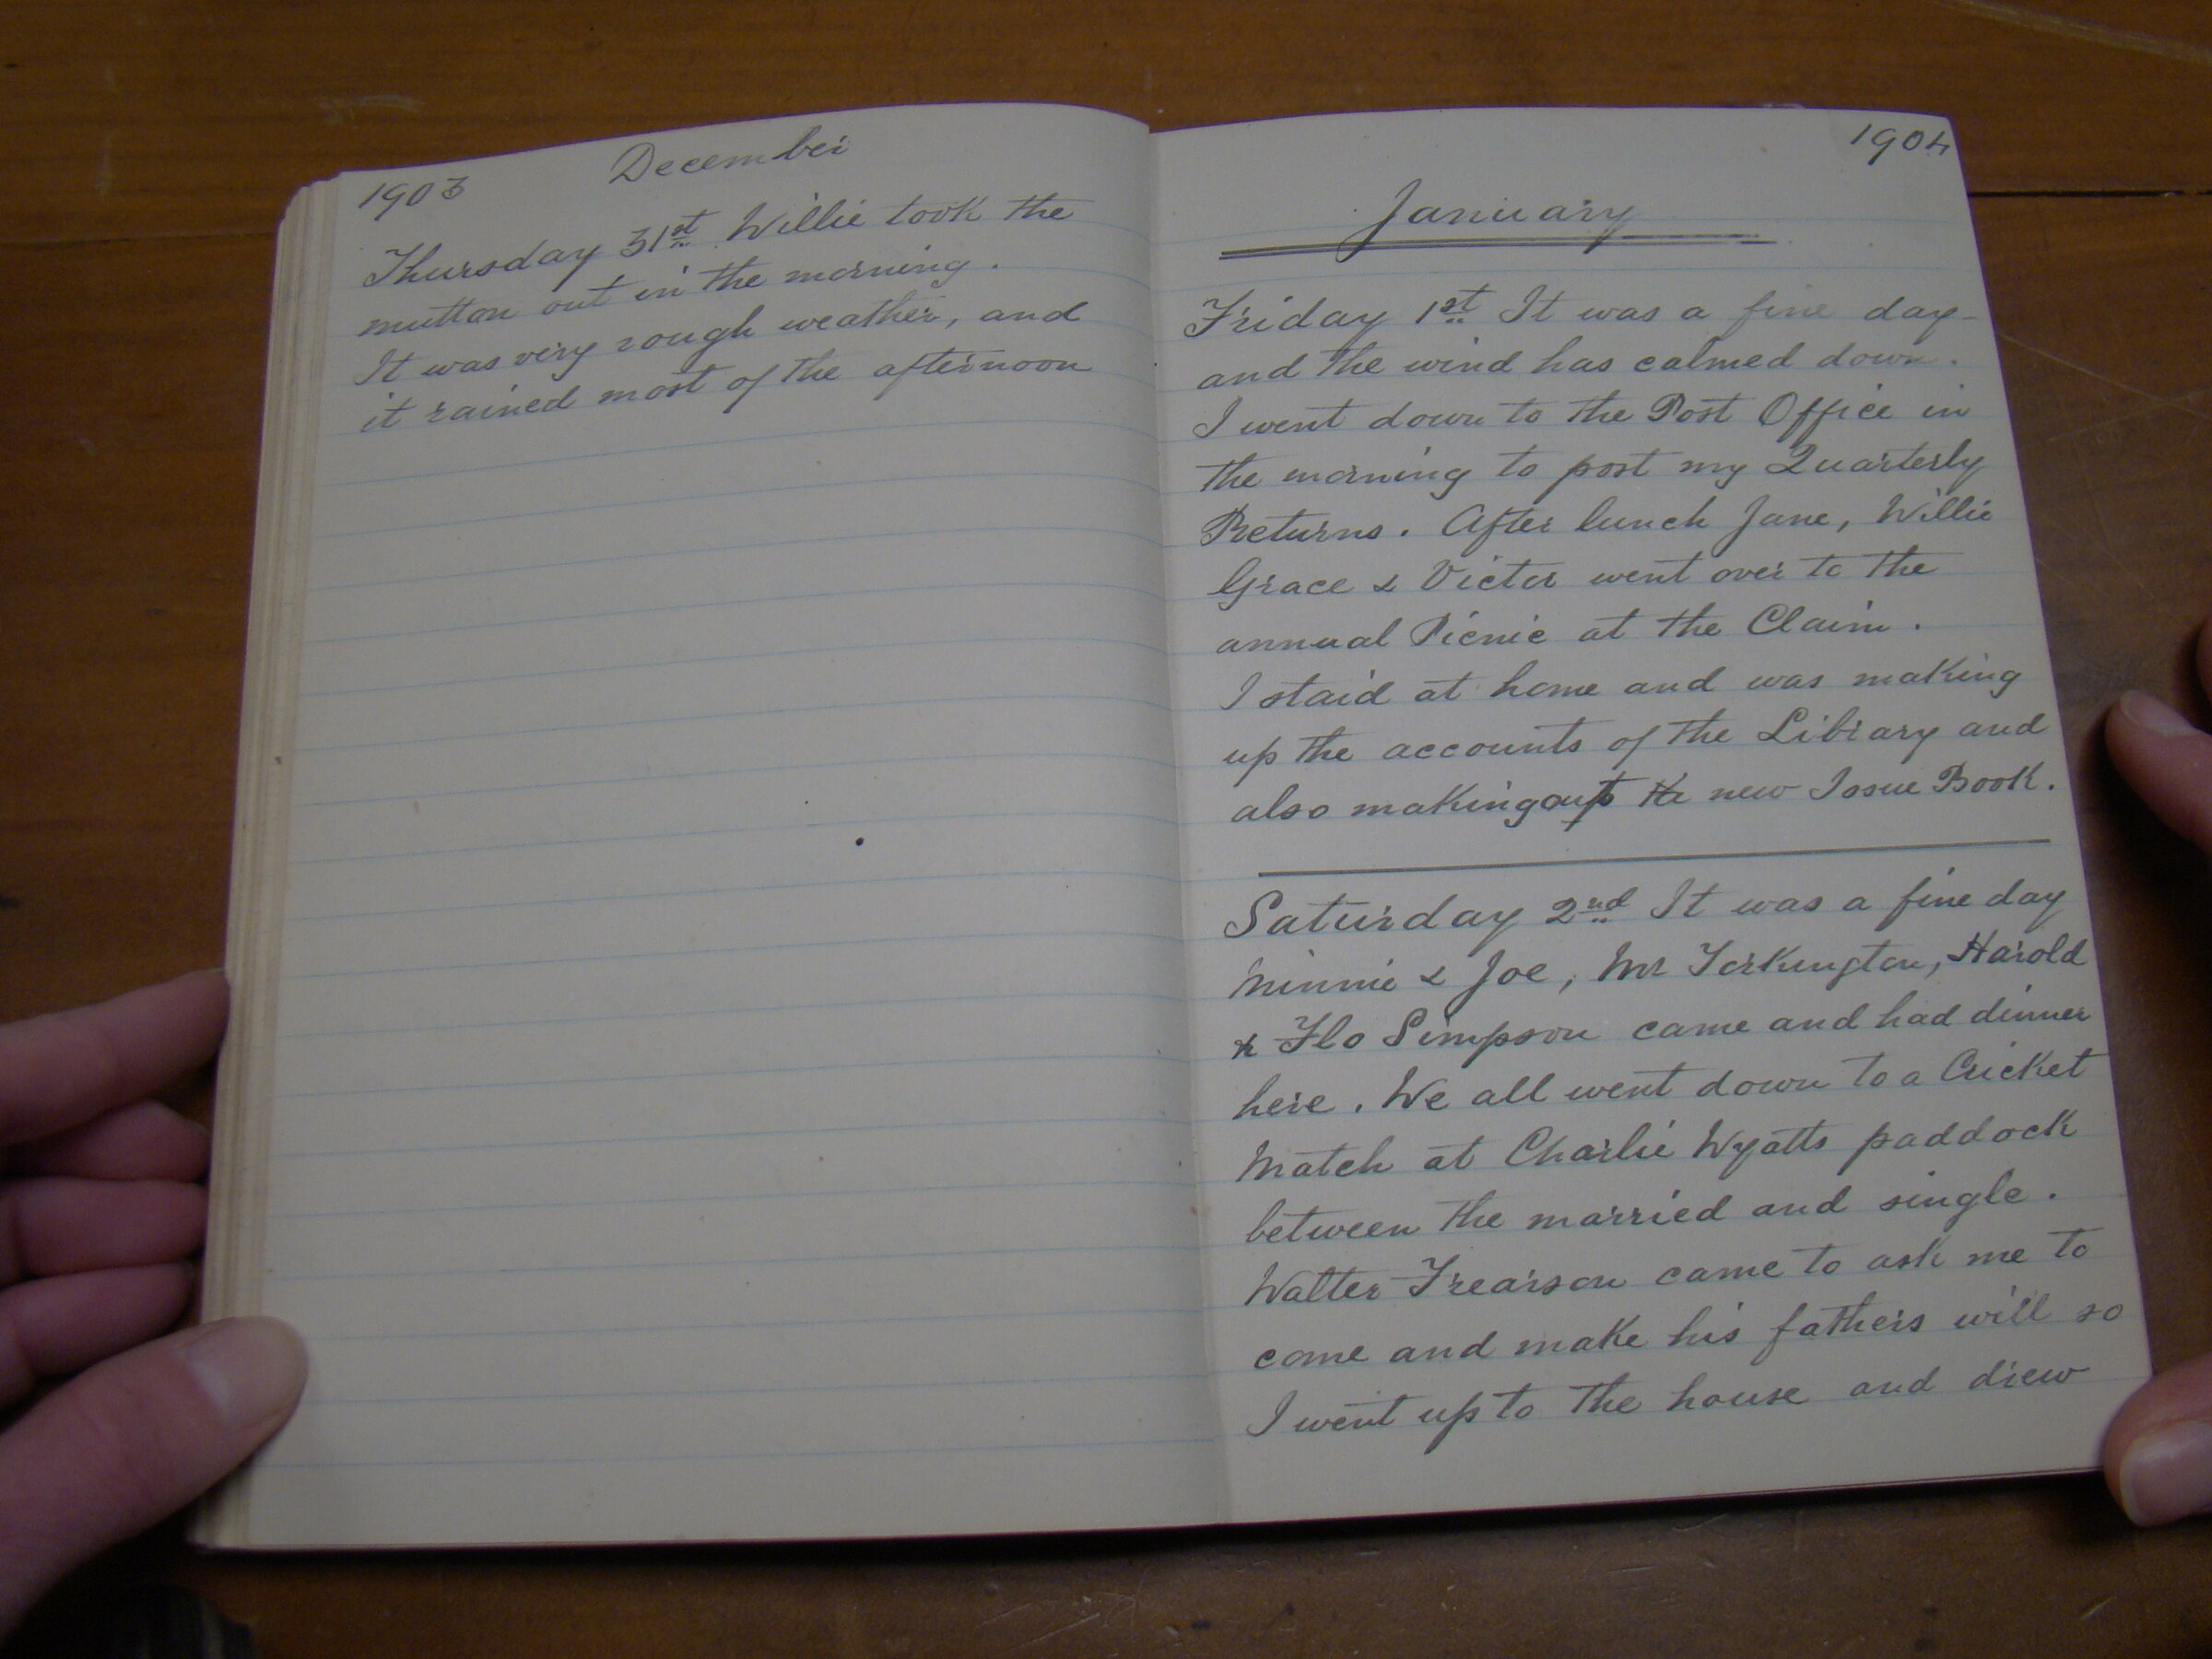 1903
December
Thursday 31st Willie took the
mutton out in the morning.
It was very rough weather, and
it rained most of the afternoon
1904
January
Friday 1st It was a fine day
and the wind has calmed down.
I went down to the Post Office in
the morning to post my Quarterly
Returns. After lunch Jane, Willie
Grace & Victor went over to the
annual Picnic at the Claim.
I staid at home and was making
up the accounts of the Library and
also making out new Issue Book.
Saturday 2nd It was a fine day
Minnie & Joe, Mr Torkington, Harold
& Flo Simpson came and had dinner
here. We all went down to a Cricket
Match at Charlie Wyatts paddock
between the married and single.
Walter Frearson came to ask me to
come and make his fathers will so
I went up to the house and drew